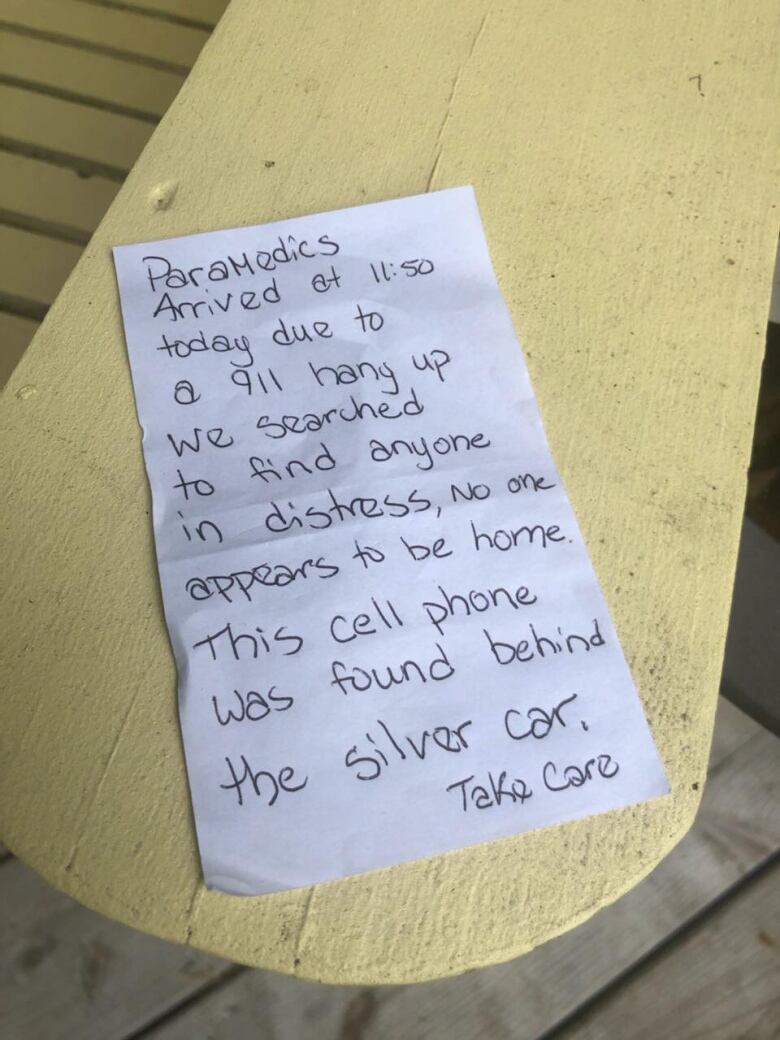 ParaMedics
Arrived at 11:50
today due to
a 911 hang up
we searched
to find anyone
in distress, No one
appears to be home.
This cell phone
was found behind
the silver car.
Take Care